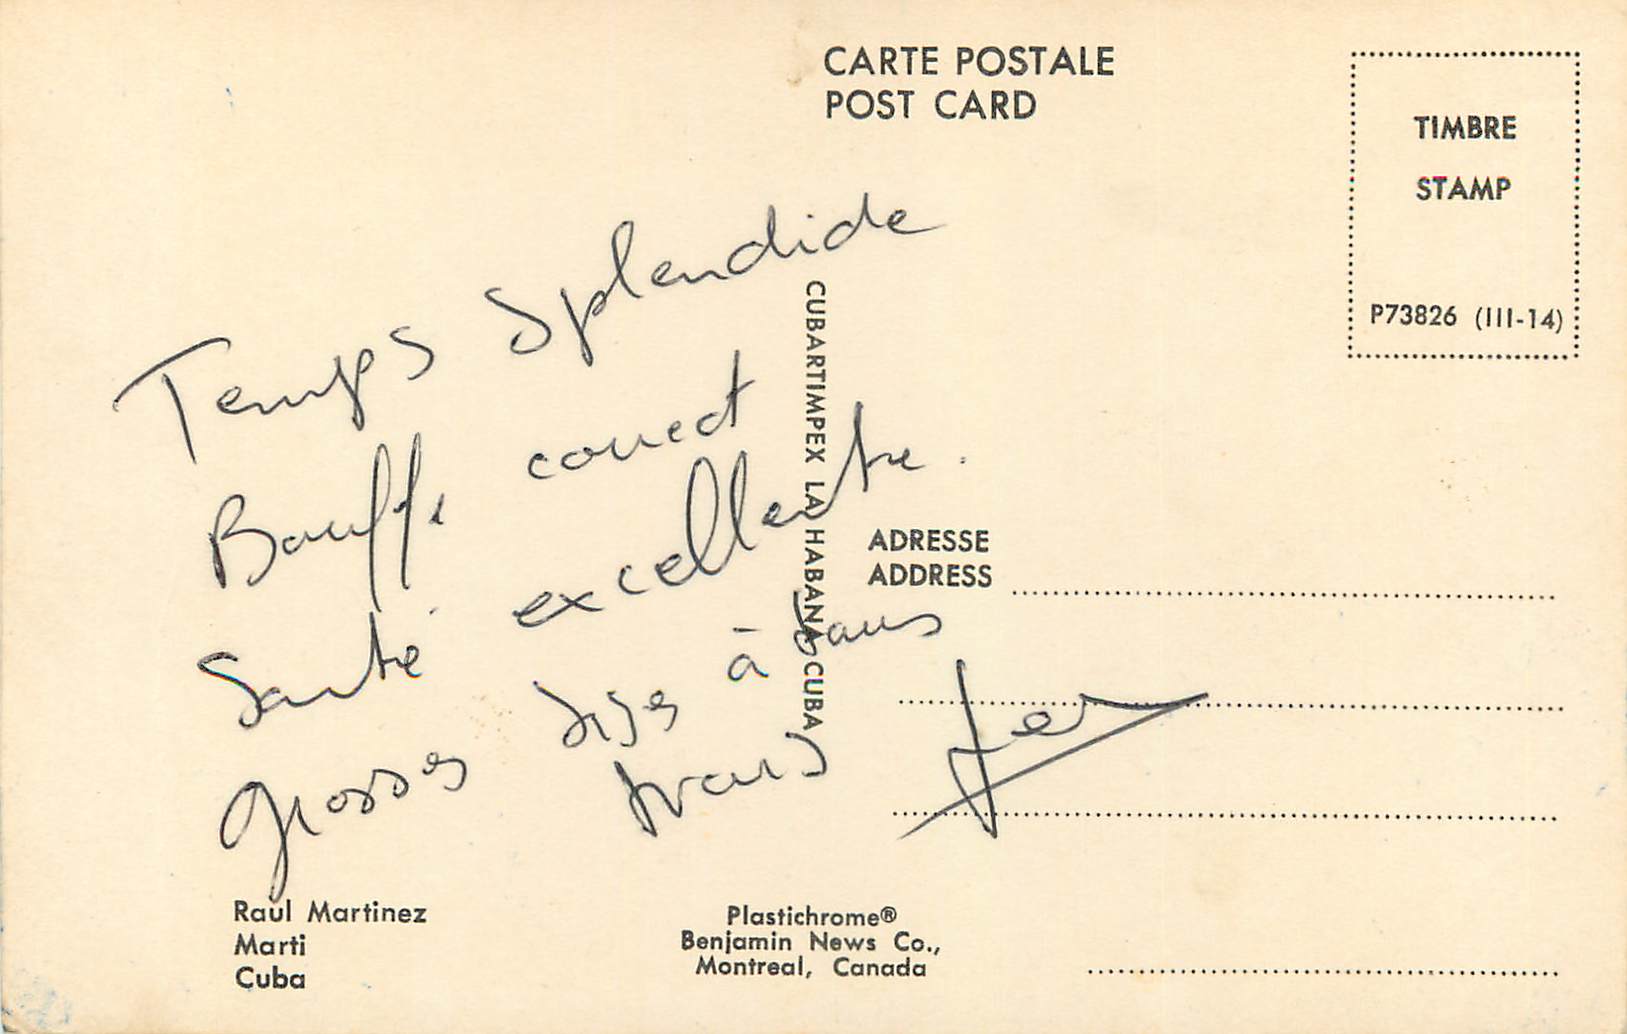 CARTE POSTALE
POST CARD
TIMBRE
STAMP
P73826 (III-14)
Temps splendide
Bouffe correct
Santé excellente.
Grosses bises à tous
CUBARTIMPEX LA HABANA CUBA
ADRESSE
ADDRESS
Raul Martinez
Marti
Cuba
Plastichrome®
Benjamin News Co.,
Montreal, Canada